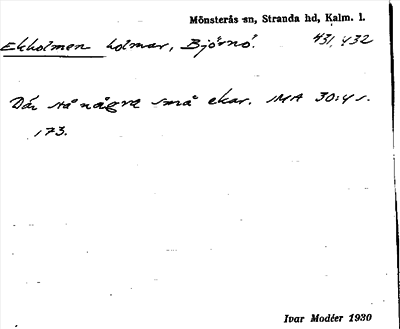 Mönsterås sn, Stranda hd, Kalm. l.
Ekholmen holmar, Björnö. 431, 432
Där stå några små ekar. IMA 30:4 s.
173.
Ivar Modéer 1930